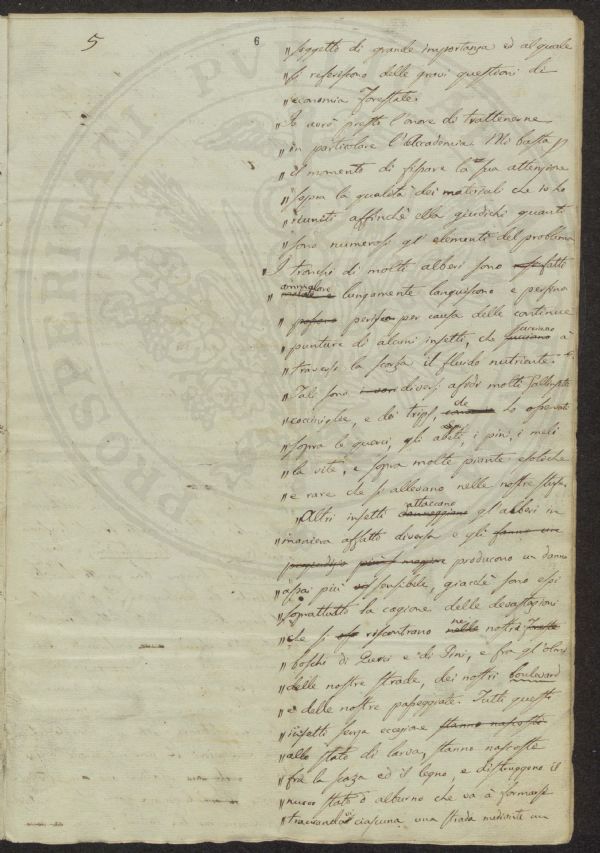 5
6
" soggetto di grande importanza ed al quale
" si riferiscono delle gravi questioni di
" economia forestale.
" Io avrò presto l'onore di trattenerne
" in particolare l'Accademia. Mi basta p
" il momento di fissare la sua attenzione
" sopra la qualità dei materiali che io ho
" riuniti affinchè ella giudichi quanti
" sono numerosi gl' elementi del problema
" I tronchi di molti alberi sono fatti
" ammalare lungamente languiscono e persino
" per causa delle continue
" punture di alcuni insetti, che succiano a
" traverso la scorza il fluido nutriente.
" Tali sono diversi afidi molti
" cocciniglie, e dei trips, che ho osservati
" sopra le querci, gli abeti, i pini, i meli
" la vite, e sopra molte piante esotiche
" e rare che si allevano nelle nostre stufe.
" Altri insetti attaccano gl' alberi in
" maniera affatto diversa e gli fanno un
" pregiudizio più maggiore producono un danno
" assai più sensibile, giacchè sono essi
" soprattutto la cagione delle devastazioni
" che si riscontrano ne nostri foreste
" boschi di Querci e di Pini, e fra gl' olmi
" delle nostre strade, dei nostri boulevard
" e delle nostre passeggiate. Tutti questi
" insetti senza eccezione stanno nascosti
" allo stato di larva, stanno nascoste
" fra la scorza ed il legno, e distruggono il
" nuovo strato d'alburno che va à formarsi
" tracciandosi ciascuna una strada mediante un